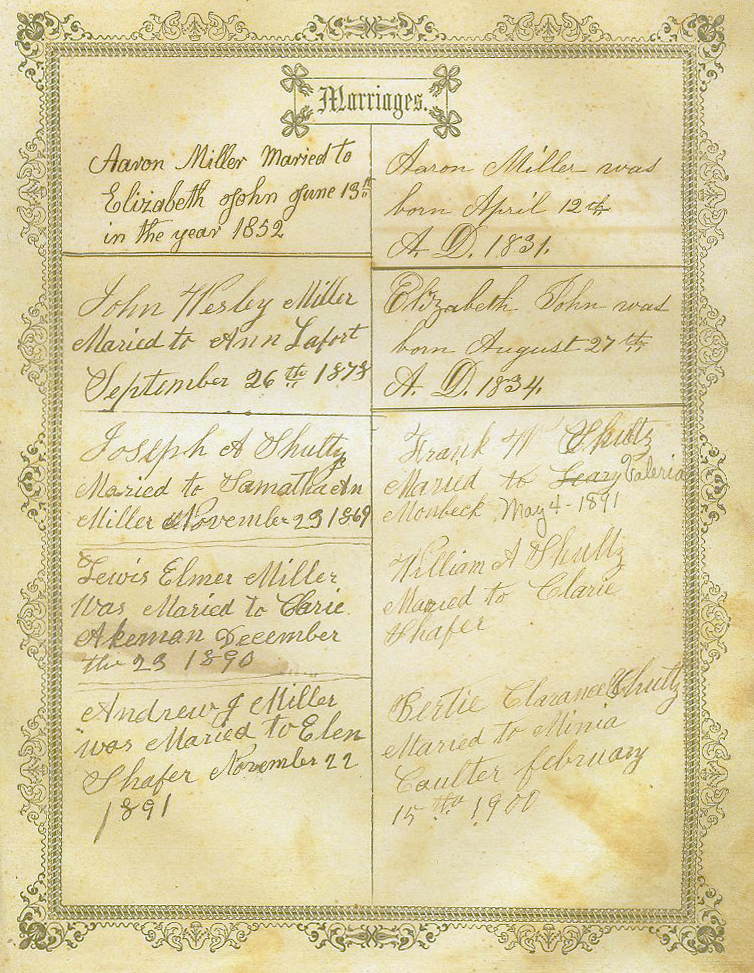 Marriages.
Aaron Miller Maried to
Elizabeth John June 13th
in the year 1852
John Wesley Miller
Maried to Ann Lafort
September 26th 1878
Joseph A Shultz
Maried to Samatha An
Miller November 23 1869
Lewis Elmer Miller
Was Maried to Clarie
Akeman December
the 23 1890
Andrew J Miller
was Maried to Elen
Shafer November 22
1891
Aaron Miller was
born April 12th
A. D. 1831.
Elizabeth John was
born August 27th
A. D. 1834.
Frank W Shultz
Maried to Valeria
Monbeck May 4-1891
William A Shultz
Maried to Clarie
Shafer
Bertie Clarance Shultz
Maried to Minia
Coulter february
15th 1900